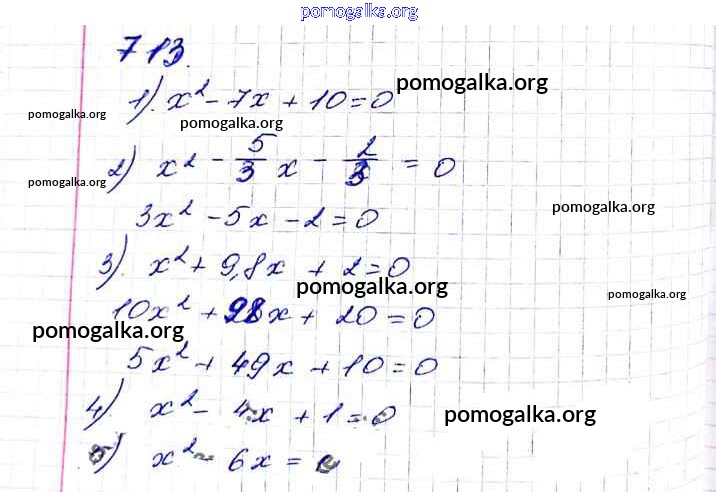 pomogalka.org
713.
1). x² - 7x + 10 = 0
pomogalka.org
pomogalka.org
pomogalka.org
2) x² - 5/3 x - 2/3 = 0
pomogalka.org
3x² - 5x - 2 = 0
pomogalka.org
3). x² + 9,8x + 2 = 0
pomogalka.org
pomogalka.org
10x² + 98x + 20 = 0
pomogalka.org
5x² + 49x + 10 = 0
4) x² - 4x + 1 = 0
pomogalka.org
5) x² - 6x = 0